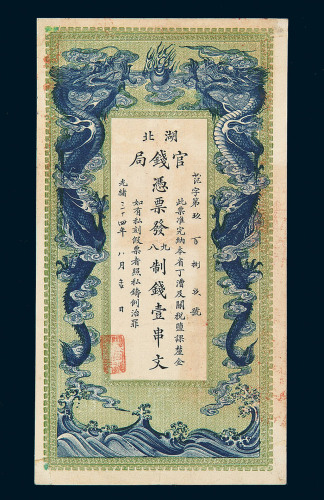 湖北
官錢局
憑票發九八制錢壹串文
此票准完納本省丁漕及關稅鹽課釐金
如有私刻假票者照私鑄例治罪
光緒二十四年八月吉日